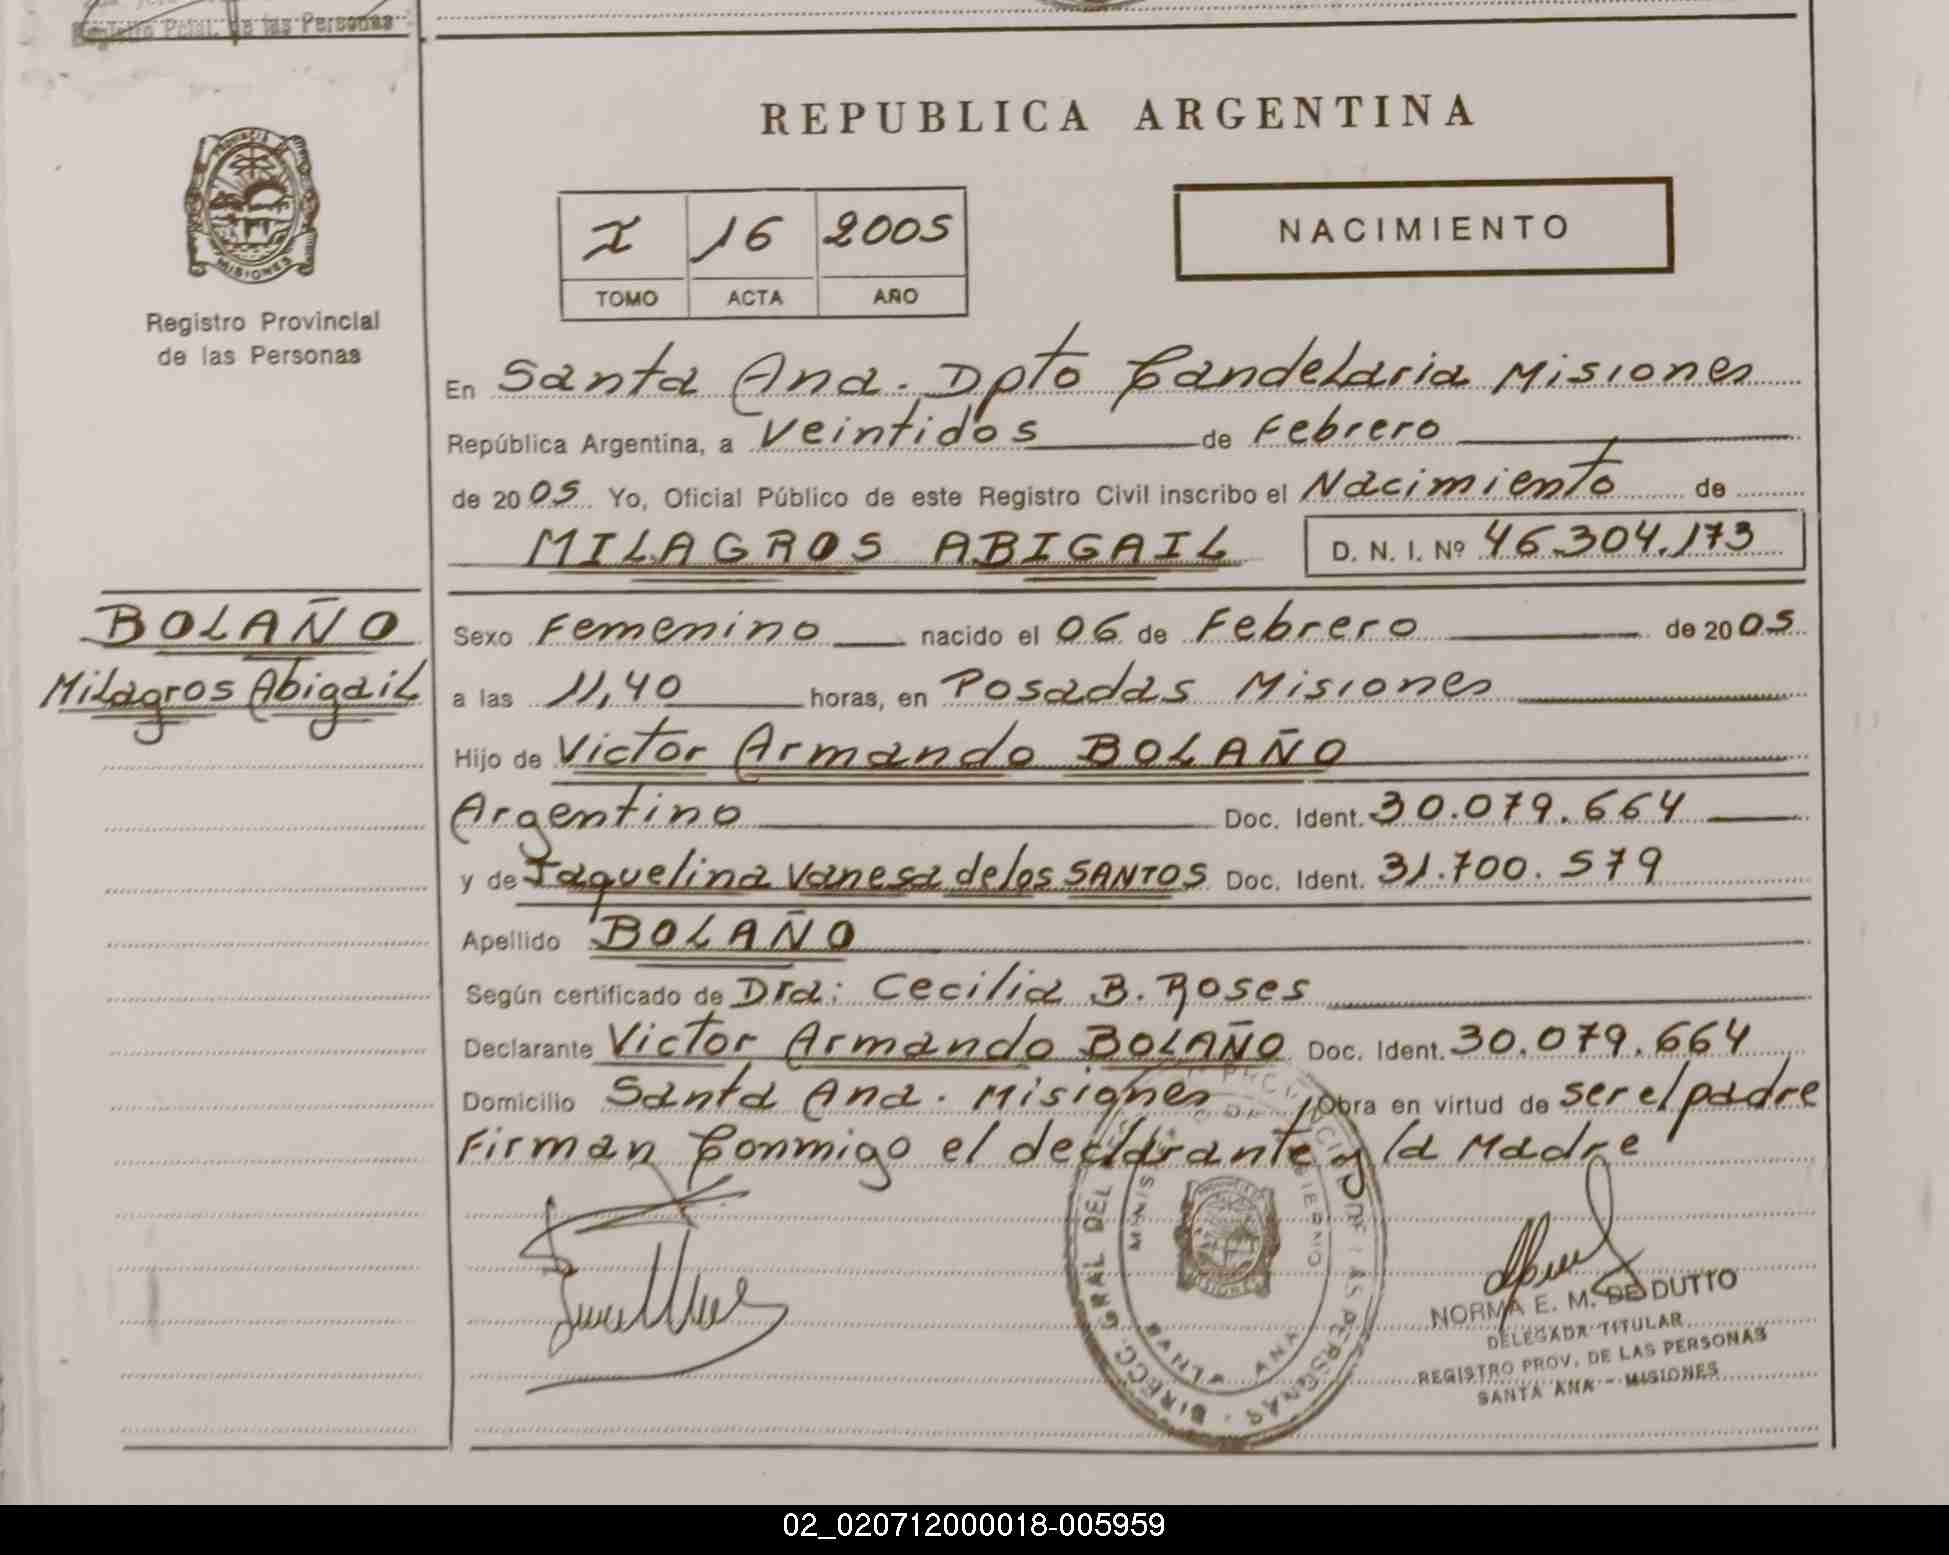 Registro Pcial. de las Personas
REPUBLICA ARGENTINA
PROVINCIA DE
MISIONES
Registro Provincial
de las Personas
I 16 2005
TOMO ACTA AÑO
NACIMIENTO
En Santa Ana. Dpto Candelaria Misiones
República Argentina, a Veintidos de Febrero
de 2005 Yo, Oficial Público de este Registro Civil inscribo el Nacimiento de
MILAGROS ABIGAIL D. N. I. Nº 46.304.173
BOLAÑO
Milagros Abigail
Sexo Femenino nacido el 06 de Febrero de 2005
a las 11,40 horas, en Posadas Misiones
Hijo de Victor Armando BOLAÑO
Argentino Doc. Ident. 30.079.664
y de Jaquelina Vanesa de los SANTOS Doc. Ident. 31.700.579
Apellido BOLAÑO
Según certificado de Dra: Cecilia B. Roses
Declarante Victor Armando BOLAÑO Doc. Ident. 30.079.664
Domicilio Santa Ana. Misiones, Obra en virtud de ser el padre
Firman Conmigo el declarante y la Madre
DIRECC. GRAL DEL DE LAS PERSONAS
SANTA ANA
NORMA E. M. DE DUTTO
DELEGADA TITULAR
REGISTRO PROV. DE LAS PERSONAS
SANTA ANA - MISIONES
02_020712000018-005959